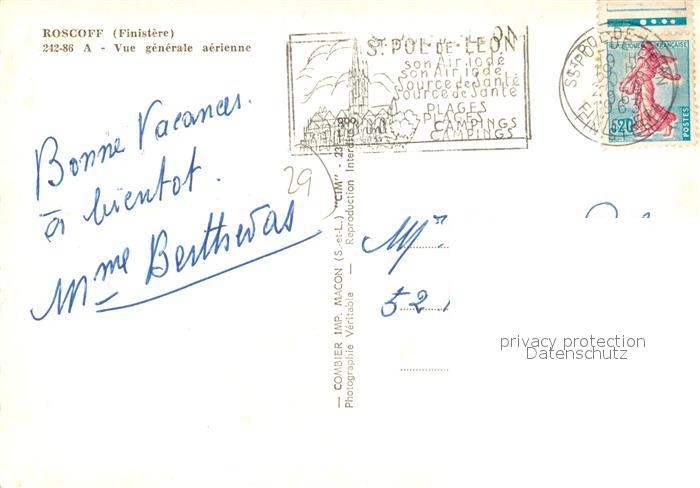 ROSCOFF (Finistère)
242-86 A - Vue générale aérienne
ST POL-DE-LEON
son Air iodé
son Air iodé
Source de Santé
Source de Santé
PLAGES
PLAGES
CAMPINGS
CAMPINGS
ST POL-DE-
REPUBLIQUE FRANÇAISE
0,20
POSTES
Bonne Vacances.
à bientot.
Mme
29
— COMBIER IMP. MACON (S.-et-L.) "CIM" -
Photographie Véritable — Reproduction Interdite
52
privacy protection
Datenschutz